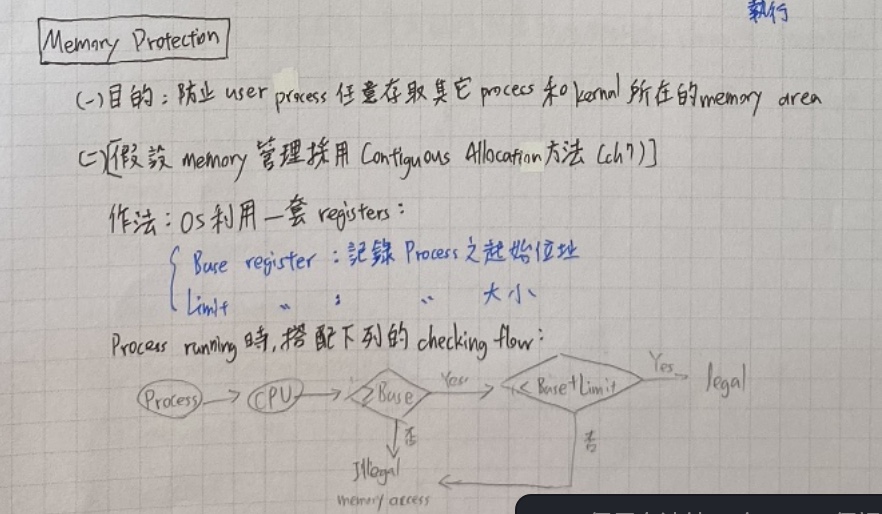 執行
Memory Protection
(一)目的：防止 user process 任意存取其它 process 和 kernal 所在的 memory area
(二)[假設 memory 管理採用 Contiguous Allocation 方法 (ch7)]
作法：OS利用一套 registers：
Base register：記錄 Process 之起始位址
Limit 〃 : 〃 大小
Process running 時,搭配下列的 checking flow：
Process CPU ≥Base Yes < Base+Limit Yes legal
否 否
Illegal
memory access